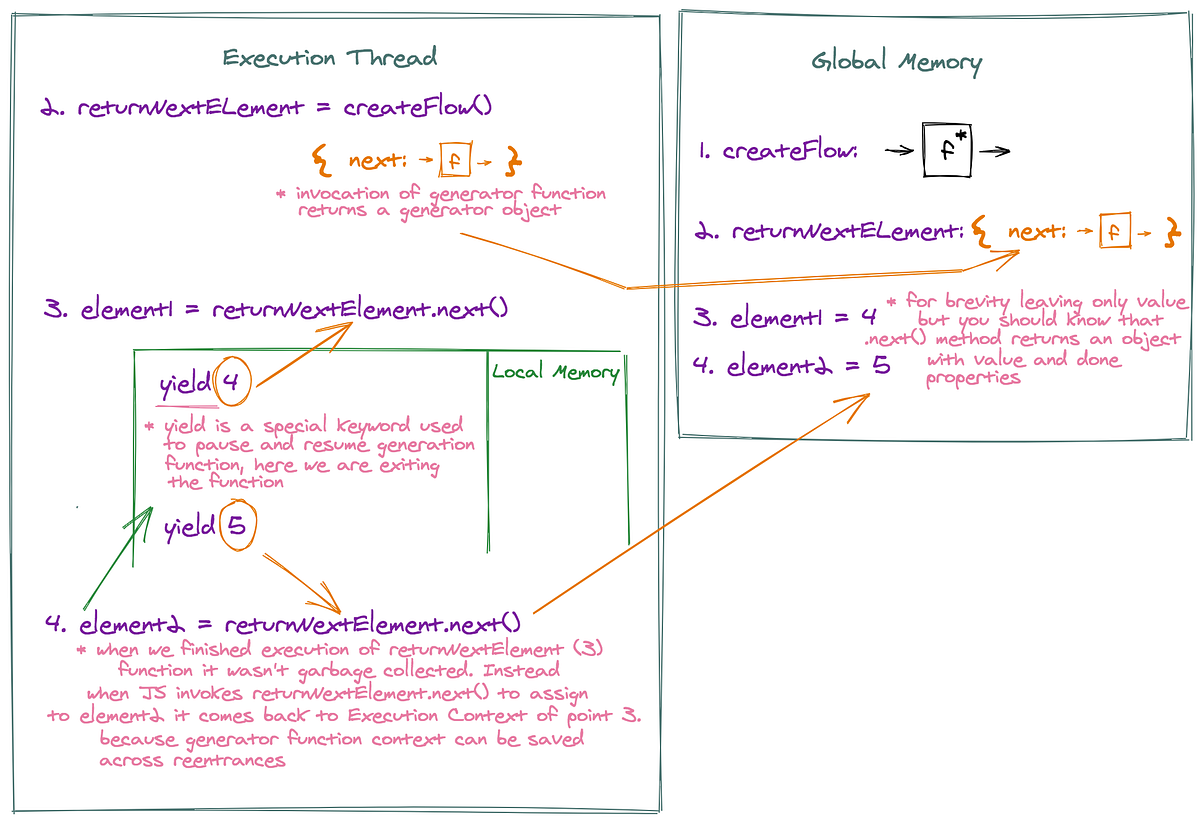 Execution Thread
2. returnNextELement = createFlow()
{ next: → f → }
* invocation of generator function
returns a generator object
3. element1 = returnNextElement.next()
yield 4
Local Memory
* yield is a special keyword used
to pause and resume generation
function, here we are exiting
the function
yield 5
4. element2 = returnNextElement.next()
* when we finished execution of returnNextElement (3)
function it wasn't garbage collected. Instead
when JS invokes returnNextElement.next() to assign
to element2 it comes back to Execution Context of point 3.
because generator function context can be saved
across reentrances
Global Memory
1. createFlow: → f* →
2. returnNextELement: { next: → f → }
3. element1 = 4
4. element2 = 5
* for brevity leaving only value
but you should know that
.next() method returns an object
with value and done
properties